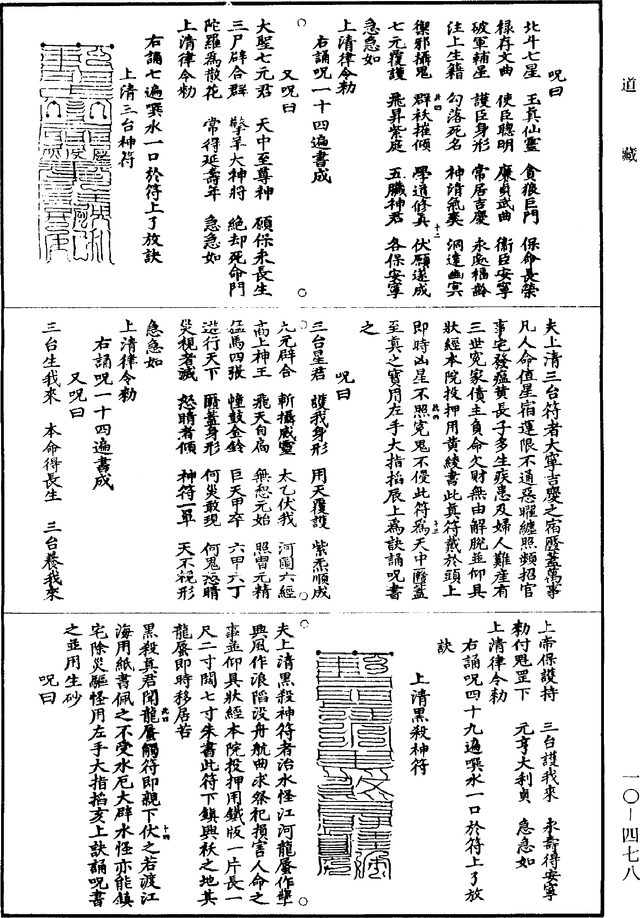 道藏
一〇—四七八
呪曰
北斗七星　玉真仙靈　貪狼巨門　保命長榮
祿存文曲　使臣聰明　廉貞武曲　衛臣安寧
破軍輔星　護臣身形　常居吉慶　永處福齡
注上生籍　勾落死名　神清氣爽　洞達幽冥
禦邪攝鬼　群祅摧傾　學道修真　伏願遂成
七元覆護　飛昇紫庭　五臟神君　各保安寧
急急如
上清律令勑
右誦呪一十四遍書成
又呪曰
大聖七元君　天中至尊神　願保永長生
三尸辟合群　擎羊大神將　絕却死命門
陀羅爲散花　常得延壽年　急急如
上清律令勑
右誦七遍噀水一口於符上了放訣
上清三台神符
夫上清三台符者大寧吉慶之宿壓蓋萬事
凡人命值星宿運限不通惡曜纏照頻招官
事宅發瘟黃長子多生疾患及婦人難產有
三世冤家債主負命欠財無由解脫並仰具
狀經本院投押用黃綾書此真符戴於頭上
即時凶星不照冤鬼不侵此符爲天中壓蓋
至真之寶用左手大指掐辰上爲訣誦呪書
之
呪曰
三台星君　護我身形　用天覆護　紫炁順成
九元辟合　斬攝威靈　太乙伏我　河圖六經
高上神王　飛天自扃　無怱元始　照胃元精
猛馬四張　幢鼓金鈴　巨天甲卒　六甲六丁
遊行天下　壓蓋身形　何災敢現　何鬼恣睛
災視者滅　怒睛者傾　神符一單　天不視形
急急如
上清律令勑
右誦呪一十四遍書成
又呪曰
三台生我來　本命得長生　三台養我來
上帝保護持　三台護我來　永壽得安寧
勑付魁罡下　元亨大利貞　急急如
上清律令勑
右誦呪四十九遍噀水一口於符上了放
訣
上清黑殺神符
夫上清黑殺神符者治水怪江河龍蜃作孽
興風作浪陷沒舟航曲求祭祀損害人命之
事並仰具狀經本院投押用鐵版一片長一
尺二寸闊七寸朱書此符下鎮興祅之地其
龍蜃即時移居若
黑殺真君聞龍蜃觸符即親下伏之若渡江
海用紙書佩之不受水厄大群水怪亦能鎮
宅除災驅怪用左手大指掐亥上訣誦呪書
之並用生砂
呪曰